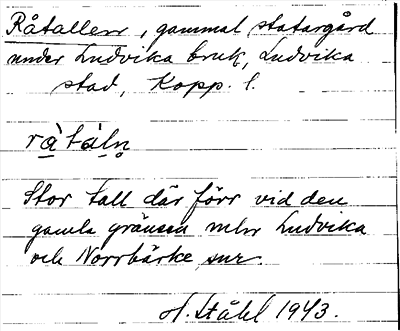 Råtallen, gammal statargård
under Ludvika bruk, Ludvika
stad, Kopp. l.
rå̀tàln̥
Stor tall där förr vid den
gamla gränsen mlr Ludvika
och Norrbärke snr.
H. Ståhl 1943.